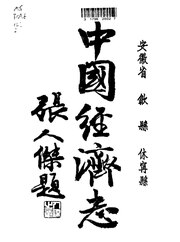 安徽省 歙縣 休寧縣
中國經濟志
張人傑題